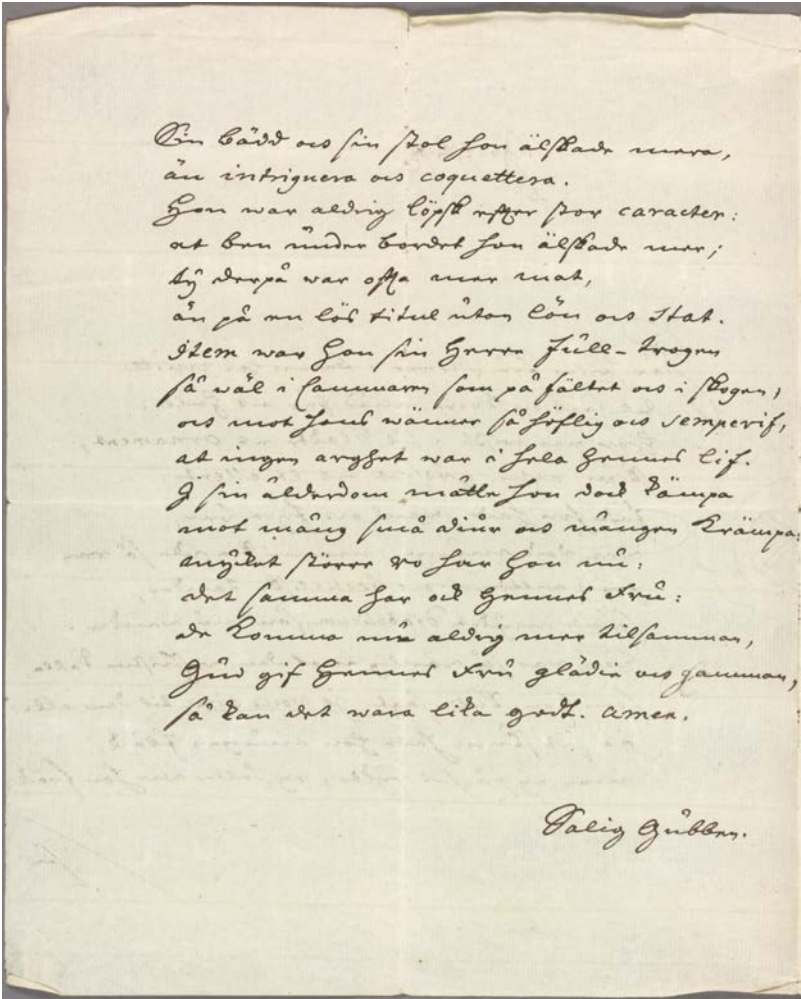 Sin bädd och sin stol hon älskade mera,
än intriguera och coquettera.
Hon war aldrig löpsk efter stor caracter:
at ben under bordet hon älskade mer;
ty derpå war ofta mer mat,
än på en lös titul utan lön och stat.
Item war hon sin Herre full-trogen
så wäl i Cammaren som på fältet och i skogen,
och mot hans wänner så höflig och semperif,
at ingen arghet war i hela hennes lif.
I sin ålderdom måtte hon dock kämpa
mot mång små diur och mången Krämpa:
mycket större ro har hon nu:
det samma har ock hennes Fru:
de komma nu aldrig mer tilsamman,
Gud gif hennes Fru glädie och gamman,
så kan det wara lika godt. Amen.
Salig Gubben.